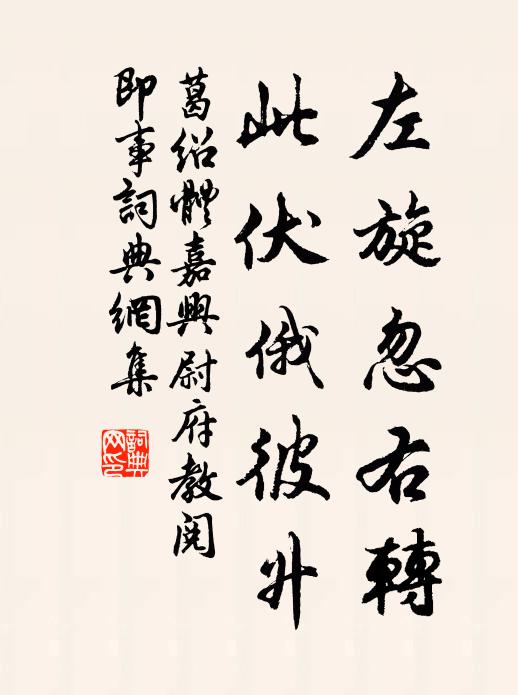 左旋忽右轉
此伏俄彼升
葛紹體嘉興尉府教閱
即事詞典網集
詞典网印